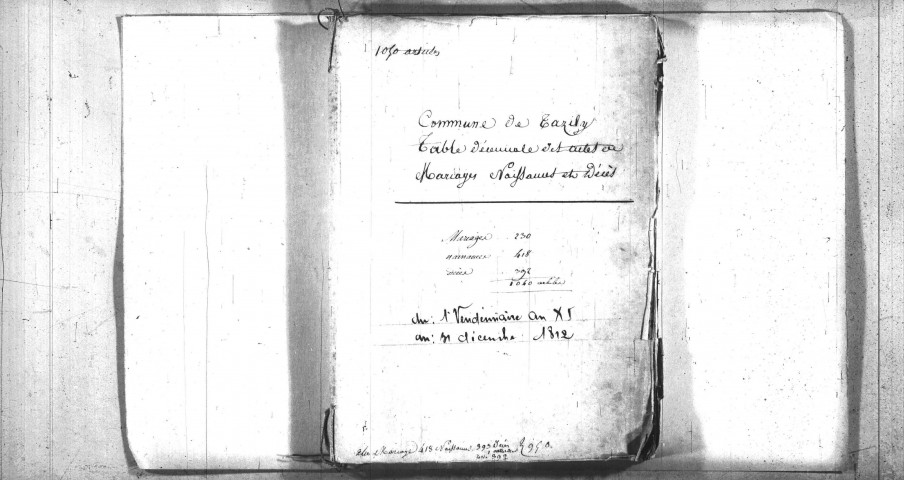 1050 articles
Commune de Tazilly
Table décennale des actes de
Mariages Naissances et Décès
Mariages 230
naissances 418
décès 392
1040 articles
du: 1er Vendémiaire an XI
au: 31 décembre 1812
Mariage 418 Naissances 393 Décès
392